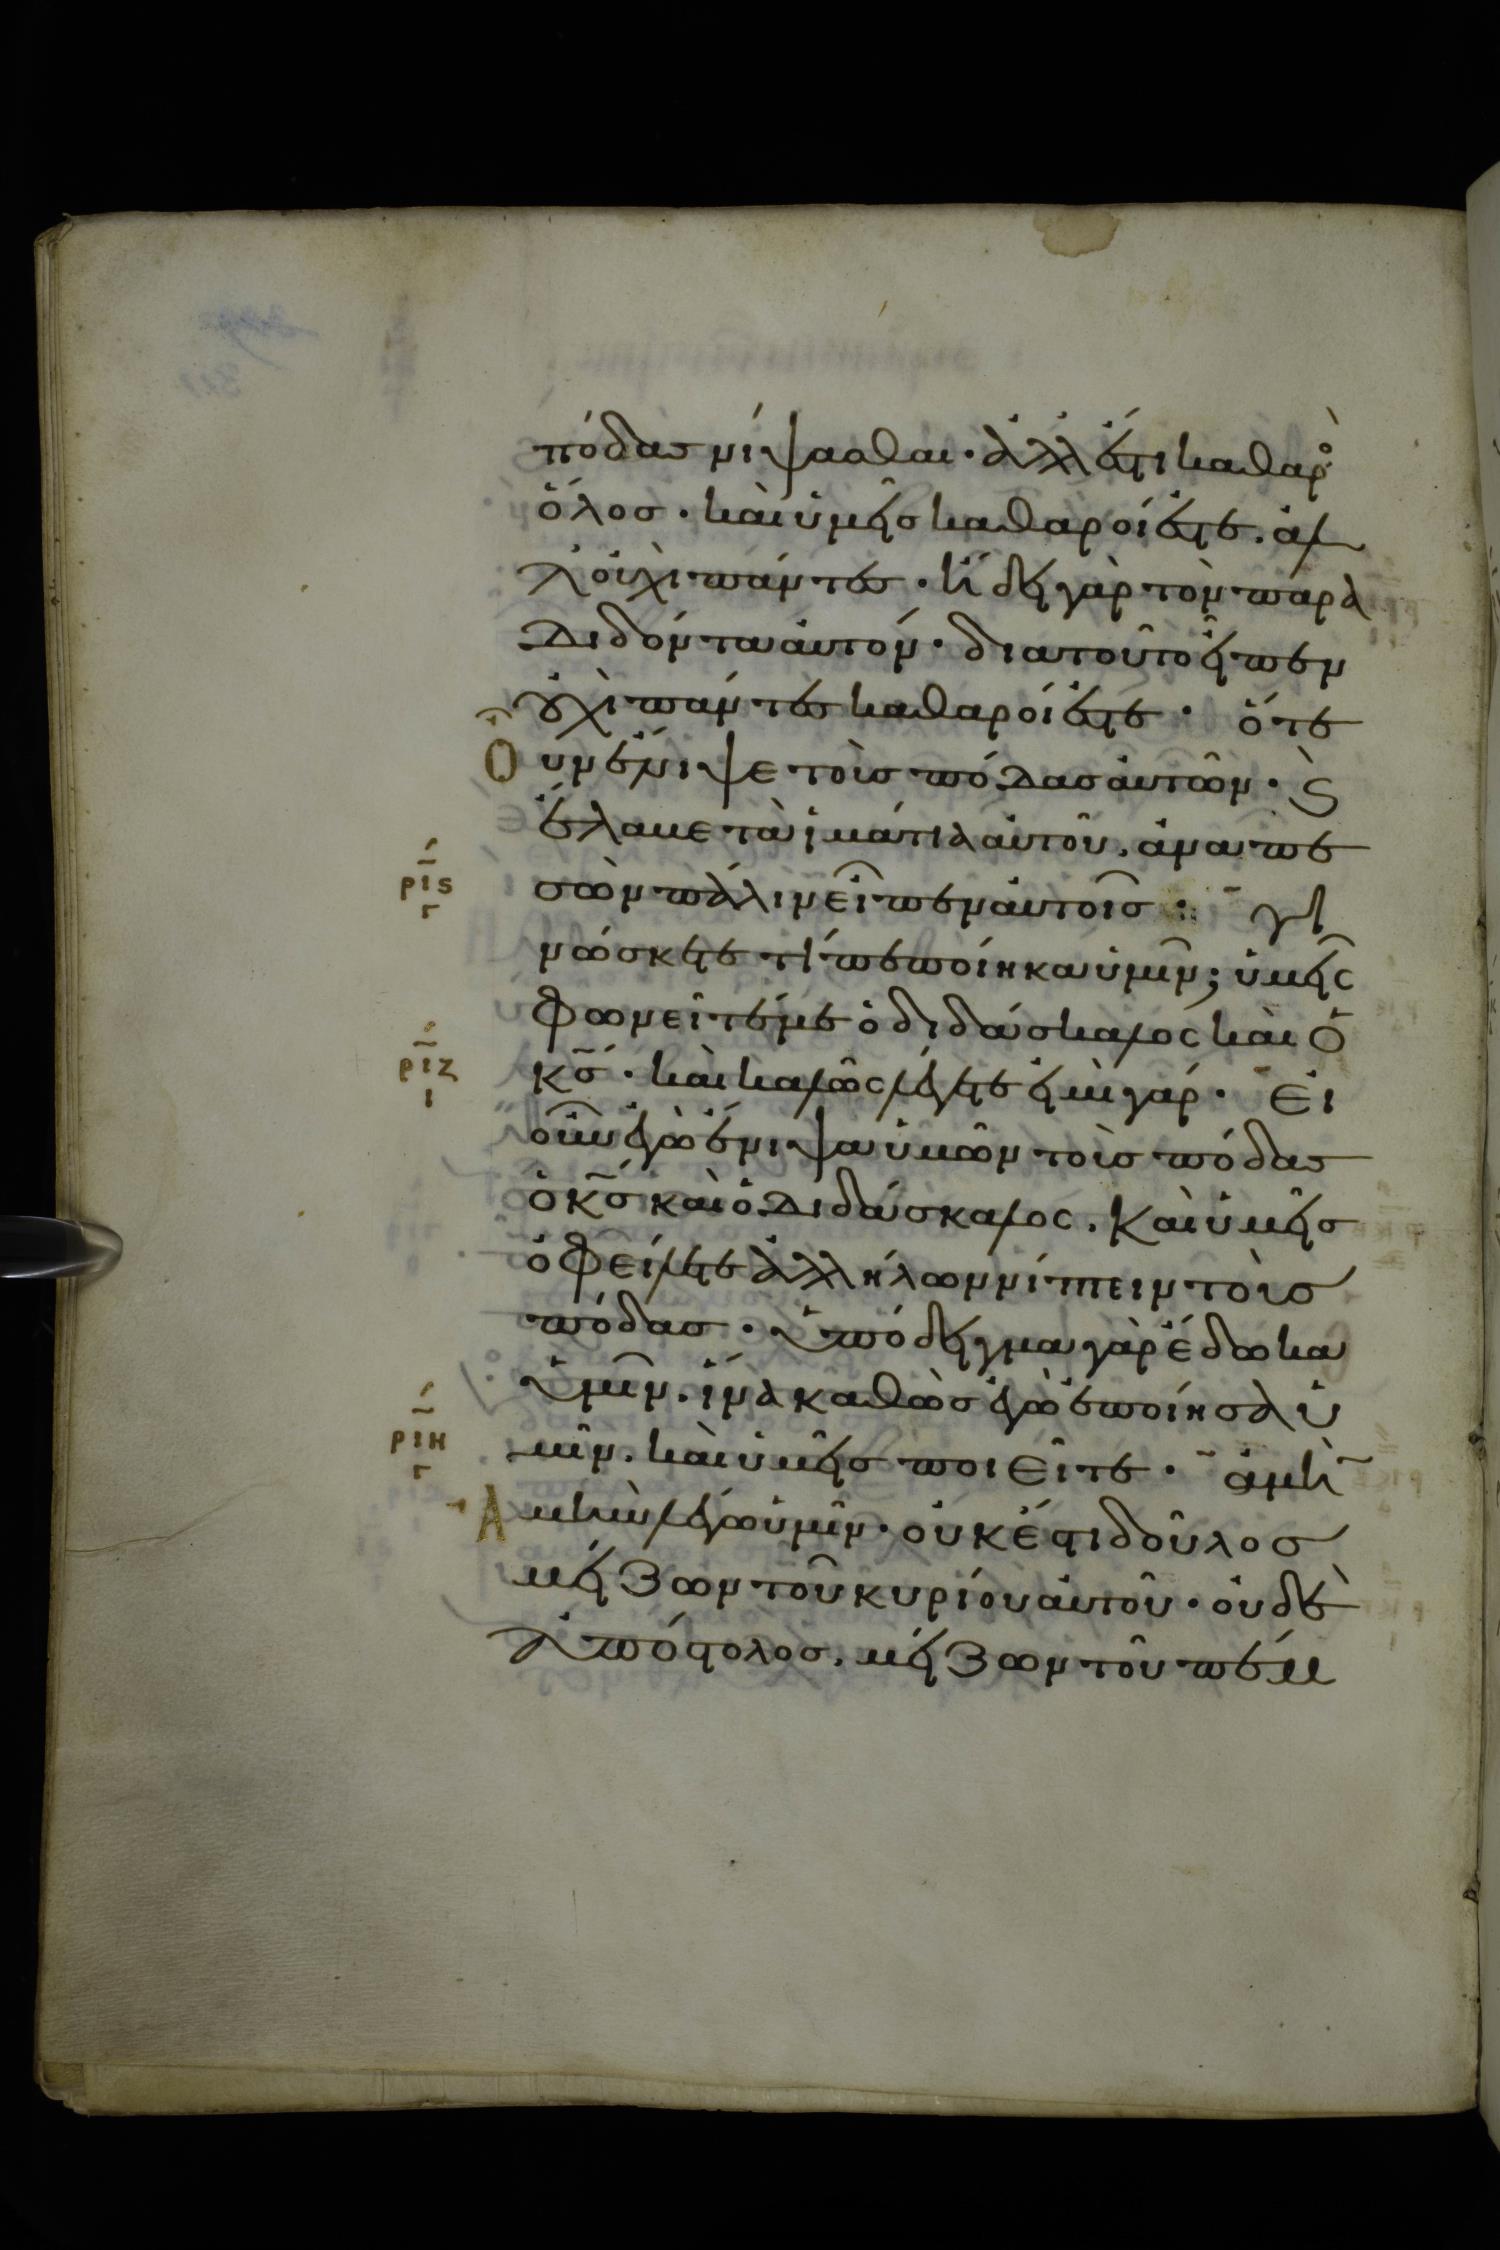 πόδας νίψασθαι· ἀλλ' ἔστι καθαρὸ
ὅλος· καὶ ὑμεῖς καθαροί ἐστε. ἀλ
λ' οὐχὶ πάντες· ἤδει γὰρ τὸν παρα
διδόντα αὐτόν· διατοῦτο εἶπεν
οὐχὶ πάντες καθαροί ἐστε· ὅτε
Οὖν ἔνιψε τοὺς πόδας αὐτῶν· ϗ
ἔλαβε τὰ ἱμάτια αὐτοῦ. ἀναπε
σὼν πάλιν εἶπεν αὐτοῖς· γι
ρις
γ
νώσκετε τί πεποίηκα ὑμῖν; ὑμεῖς
φωνεῖτέ με ὁ διδάσκαλος καὶ ὁ
ριζ
ι
κς· καὶ καλῶς λέγετε εἰμὶ γάρ· εἰ
οὖν ἐγὼ ἔνιψα ὑμῶν τοὺς πόδας
ὁ κς καὶ ὁ διδάσκαλος. καὶ ὑμεῖς
ὀφείλετε ἀλλήλων νίπτειν τοὺς
πόδας· ὑπόδειγμα γὰρ ἔδωκα
ὑμῖν. ἵνα καθὼς ἐγὼ ἐποίησα ὑ
μῖν. καὶ ὑμεῖς ποιεῖτε· ἀμὴ
ριη
γ
Αμὴν λέγω ὑμῖν· οὐκ ἔστι δοῦλος
μείζων τοῦ κυρίου αὐτοῦ· οὐδὲ
ἀπόστολος. μείζων τοῦ πέμ